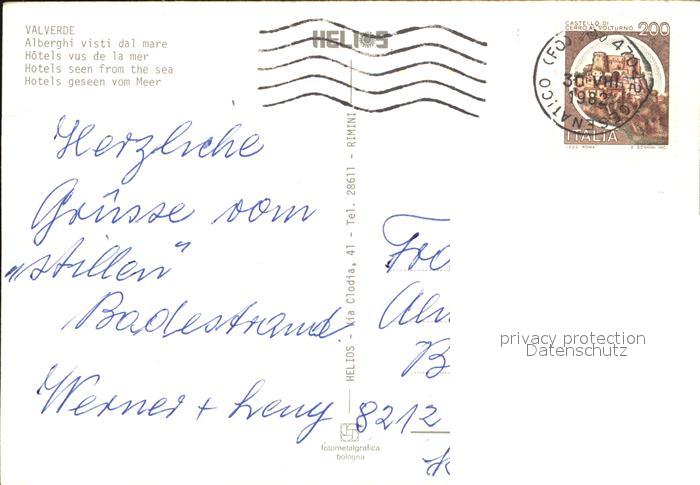 VALVERDE
Alberghi visti dal mare
Hôtels vus de la mer
Hotels seen from the sea
Hotels geseen vom Meer
HELIOS
CASTELLO DI
CERRO AL VOLTURNO 200
30 VIII
1982
ENATICO (FO)
ITALIA
Herzliche
Grüsse vom
„stillen"
Badestrand
Werner + Leny
HELIOS - Via Clodia, 41 - Tel. 28611 - RIMINI
fotometalgrafica
bologna
Fra
Alm
B
8212
privacy protection
Datenschutz